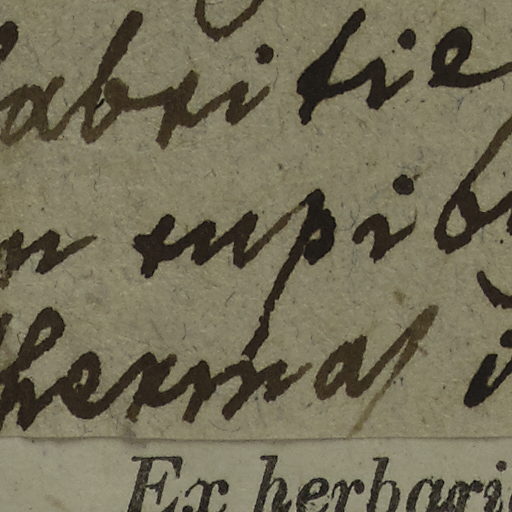 abritie
n rupib
thermas i
Ex herbari